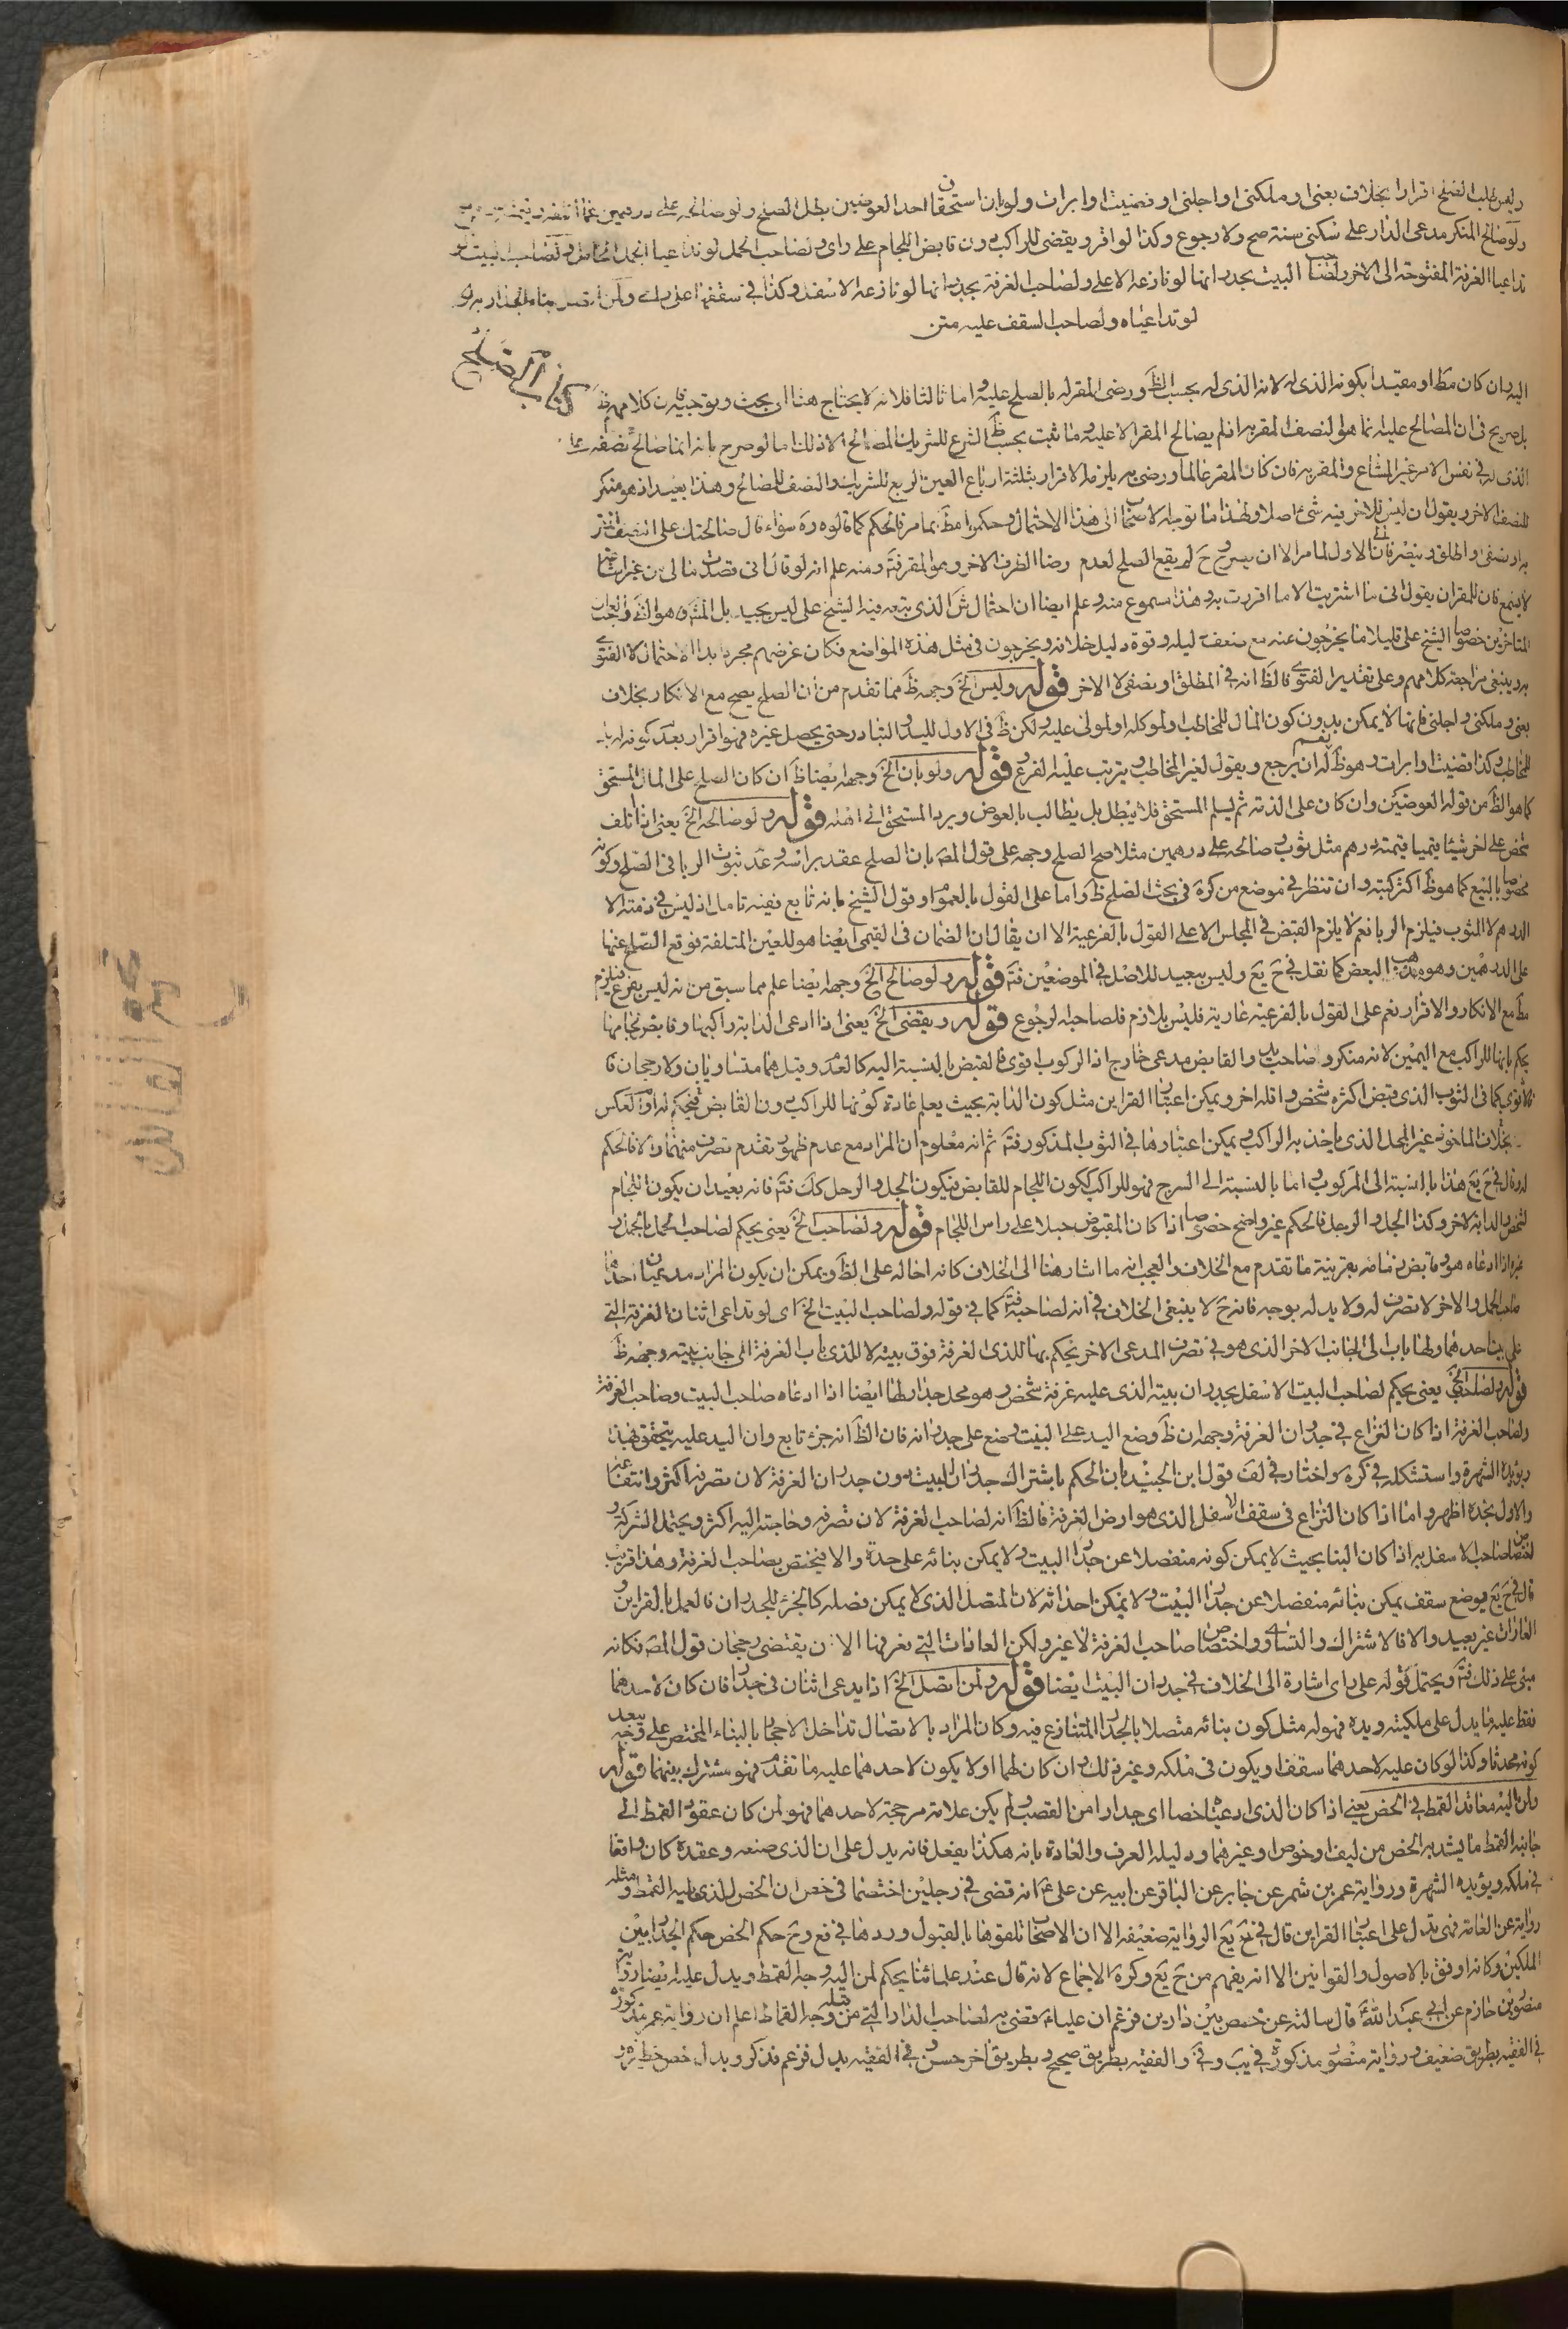 وليس طلب الصلح اقرارا بخلاف بعنى او ملكنى او اجلنى او قضيت او ابرات ولو بان استحقاق احد العوضين بطل الصلح ولو صالحه على درهمين عما اتلفه وقيمته درهم صح
ولو صالح المنكر مدعى الدار على سكنى سنة صح ولا رجوع وكذا لو اقر ويقضى للراكب دون قابض اللجام على راى ولصاحب الحمل لو تداعيا الجمل الحامل ولصاحب البيت لو
تداعيا الغرفة المفتوحة الى الاخر ولصاحب البيت بجدرانها لو نازعه الاعلى ولصاحب الغرفة بجدرانها لو نازعه الاسفل وكذا فى سقفها على راى ولمن اتصل بناء الجدار به لو
لو تداعياه ولصاحب السقف عليه متن
كتاب الصلح
اليه ان كان مظ او مقيدا بكونه الذى له لانه الذى له بحسب الظ ورضى المقر له بالصلح عليه واما ثالثا فلانه لا يحتاج هذا الى بحث وتوجيه فان كلامهم ظ
بل صريح فى ان المصالح عليه انما هو النصف المقر به اذ لم يصالح المقر الا عليه وما ثبت بحسب ظ الشرع للشريك المصالح الا ذلك اما لو صرح بانه انما صالح نصفه
الذى له فى نفس الامر غير المشاع والمقر به فان كان المقر عالما ورضى به يلزمه الاقرار بثلثة ارباع العين الربع للشريك والنصف للمصالح وهذا بعيد اذ هو منكر
للنصف الاخر ويقول ان ليس للاخر فيه شئ اصلا ولهذا ما توجه الاصحاب الى هذا الاحتمال وحكموا مظ بما مر فالحكم كما قالوه ره سواء قال صالحتك على النصف
لا يسمع فان للمقر ان يقول انى ما اشتريت الا ما اقررت به وهذا مسموع منه وعلم ايضا ان احتمال ش الذى تبعه فيه الشيخ على ليس بجيد بل المش هو
المتاخرين خصوصا الشيخ على قليلا ما يخرجون عنه مع ضعف دليله وقوة دليل خلافه ويخرجون فى مثل هذه المواضع فكان غرضهم مجرد ابداء الاحتمال لا الفتوى
به وينبغى مراجعة كلامهم وعلى تقدير الفتوى فالظ انه فى المطلق او نصفى لا الاخر قوله وليس الخ وجهه ظ مما تقدم من ان الصلح يصح مع الانكار بخلاف
بعنى وملكنى واجلنى فانها لا يمكن بدون كون المال للمخاطب او لموكله او لمولى عليه ولكن ظ فى الاول لليد والتبادر حتى يحصل غيره فهو اقرار بعدم كونه له بل
للمخاطب وكذا قضيت او ابرات وهو ظ نعم له ان يرجع ويقول لغير المخاطب ويترتب عليه الفرع قوله ولو بان الخ وجهه ايضا ظ ان كان الصلح على المال المستحق
كما هو الظ من قوله العوضين وان كان على الذمة ثم يسلم المستحق فلا يبطل بل يطالب بالعوض ويرد المستحق الى اهله قوله ولو صالحه الخ يعنى اذا اتلف
شخص على اخر شيئا قيميا قيمته درهم مثل ثوب وصالحه على درهمين مثلا صح الصلح وجهه على قول المص بان الصلح عقد براسه وعدم ثبوت الربا فى الصلح وكونه
مخصوصا بالبيع كما هو ظ اكثر كتبه وان تنظر فى موضع من كره فى بحث الصلح ظ واما على القول بالعموم او قول الشيخ بانه تابع ففيه تامل اذ ليس فى ذمته الا
الدرهم لا الثوب فيلزم الربا نعم لا يلزم القبض فى المجلس الا على القول بالفرعية الا ان يقال ان الضمان فى القيمى ايضا هو للعين المتلفة فوقع الصلح عنها
على الدرهمين وهو مذهب البعض كما نقل فى ح يع وليس ببعيد للاصل فى الموضعين فت قوله ولو صالح الخ وجهه ايضا علم مما سبق من انه ليس بفرع فيلزم
مظ مع الانكار والاقرار نعم على القول بالفرعية عارية فليس بلازم فلصاحبه الرجوع قوله ويقضى الخ يعنى اذا ادعى الدابة راكبها وقابض لجامها
يحكم بانها للراكب مع اليمين لانه منكر وصاحب يد والقابض مدعى خارج اذ الركوب اقوى فالقبض بالنسبة اليه كالعدم وقيل هما متساويان ولا رجحان
كما فى الثوب الذى قبض اكثره شخص واقله اخر ويمكن اعتبار القراين مثل كون الدابة بحيث يعلم عادة كونها للراكب دون القابض فيحكم له او العكس
بخلاف الماخوذ غير المحل الذى ياخذ به الراكب ويمكن اعتبارها فى الثوب المذكور فت ثم انه معلوم ان المراد مع عدم ظهور تقدم تصرف منهما والا فالحكم
له وقال فى ح يع هذا بالنسبة الى المركوب اما بالنسبة الى السرج فهو للراكب ككون اللجام للقابض فيكون الجل والرحل كك فت فانه بعيد ان يكون اللجام
لشخص والدابة لاخر وكذا الجل والرحل فالحكم غير واضح خصوصا اذا كان المقبوض حبلا على راس اللجام قوله ولصاحب الخ يعنى يحكم لصاحب الحمل بالجمل
غيره اذا ادعاه هو وقابض زمامه بقرينة ما تقدم مع الخلاف والعجب انه ما اشار هنا الى الخلاف كانه احاله على الظ ويمكن ان يكون المراد مدعيان احدهما
صاحب الحمل والاخر لا تصرف له ولا يد له بوجه فانه ح لا ينبغى الخلاف فى انه لصاحبه فت كما فى قوله ولصاحب البيت الخ اى لو تداعى اثنان الغرفة التى
على بيت احدهما ولها باب الى الجانب الاخر الذى هو فى تصرف المدعى الاخر يحكم بها للذى الغرفة فوق بيته لا للذى باب الغرفة الى جانب بيته وجهه ظ
قوله ولصاحب الخ يعنى يحكم لصاحب البيت الاسفل بجدران بيته الذى عليه غرفة شخص وهو محل جدارها ايضا اذا ادعاه صاحب البيت وصاحب الغرفة
ولصاحب الغرفة اذا كان النزاع فى جدران الغرفة وجهه ان ظ وضع اليد على البيت وضع على جدرانه فان الظ انه جزء تابع وان اليد عليه يتحقق بهذا
ويؤيده الشهرة واستشكله فى كره واختار فى لف قول ابن الجنيد بان الحكم باشتراك جدران البيت دون جدران الغرفة لان تصرفه اكثر وانتفاعه
والاول نجده اظهر واما اذا كان النزاع فى سقف الاسفل الذى هو ارض الغرفة فالظ انه لصاحب الغرفة لان تصرفه وحاجته اليه اكثر ويحتمل الشركة و
اختصاص صاحب الاسفل به اذا كان البنا بحيث لا يمكن كونه منفصلا عن جدار البيت ولا يمكن بنائه على حدة والا فيختص بصاحب الغرفة وهذا قريب
قال فى ح يع موضع سقف يمكن بنائه منفصلا عن جدار البيت ولا يمكن احداثه لان المتصل الذى لا يمكن فصله كالجزء للجدران فالعمل بالقراين و
العادات غير بعيد والا فالاشتراك والتساوى واختصاص صاحب الغرفة لا غير ولكن العادات التى نعرفها الان يقتضى رجحان قول المص فكانه
مبنى على ذلك فت ويحتمل قوله على راى اشارة الى الخلاف فى جدران البيت ايضا قوله ولمن اتصل الخ اذا يدعى اثنان فى جدار فان كان لاحدهما
فقط عليه ما يدل على ملكيته ويده فهو له مثل كون بنائه متصلا بالجدار المتنازع فيه وكان المراد بالاتصال تداخل الاحجار بالبناء المختص على وجه يبعد
كونه محدثا وكذا لو كان عليه لاحدهما سقف او يكون فى ملكه وغير ذلك وان كان لهما او لا يكون لاحدهما عليه ما تقدم فهو مشترك بينهما قوله
ولمن اليه معاقد القمط فى الخص يعنى اذا كان الذى ادعياه خصا اى جدارا من القصب ولم يكن علامة مرجحة لاحدهما فهو لمن كان عقود القمط الى
جانبه القمط ما يشد به الخص من ليف او خوص او غيرهما ودليله العرف والعادة بانه هكذا يفعل فانه يدل على ان الذى صنعه وعقده كان واقعا
فى ملكه ويؤيده الشهرة ورواية عمر بن شمر عن جابر عن الباقر عن ابيه عن على ع انه قضى فى رجلين اختصما فى خص ان الخص للذى اليه القمط ومثله
رواية عن العامة فهى تدل على اعتبار القراين قال فى ح يع الرواية ضعيفة الا ان الاصحاب تلقوها بالقبول وردها فى فع وح حكم الخص حكم الجدار بين
الملكين وكانه اوفق بالاصول والقوانين الا انه يفهم من ح يع وكره الاجماع لانه قال عند علمائنا يحكم لمن اليه وجه القمط ويدل عليه ايضا رواية
منصور بن حازم عن ابى عبد الله ع قال سالته عن خص بين دارين فزعم ان عليا ع قضى به لصاحب الدار التى من قبله وجه القماط اعلم ان رواية عمر مذكورة
فى الفقيه بطريق ضعيف ورواية منصور مذكورة فى يب وفى والفقيه بطريق صحيح وبطريق اخر حسن وفى الفقيه بدل فزعم فذكر وبدل خص حظيرة